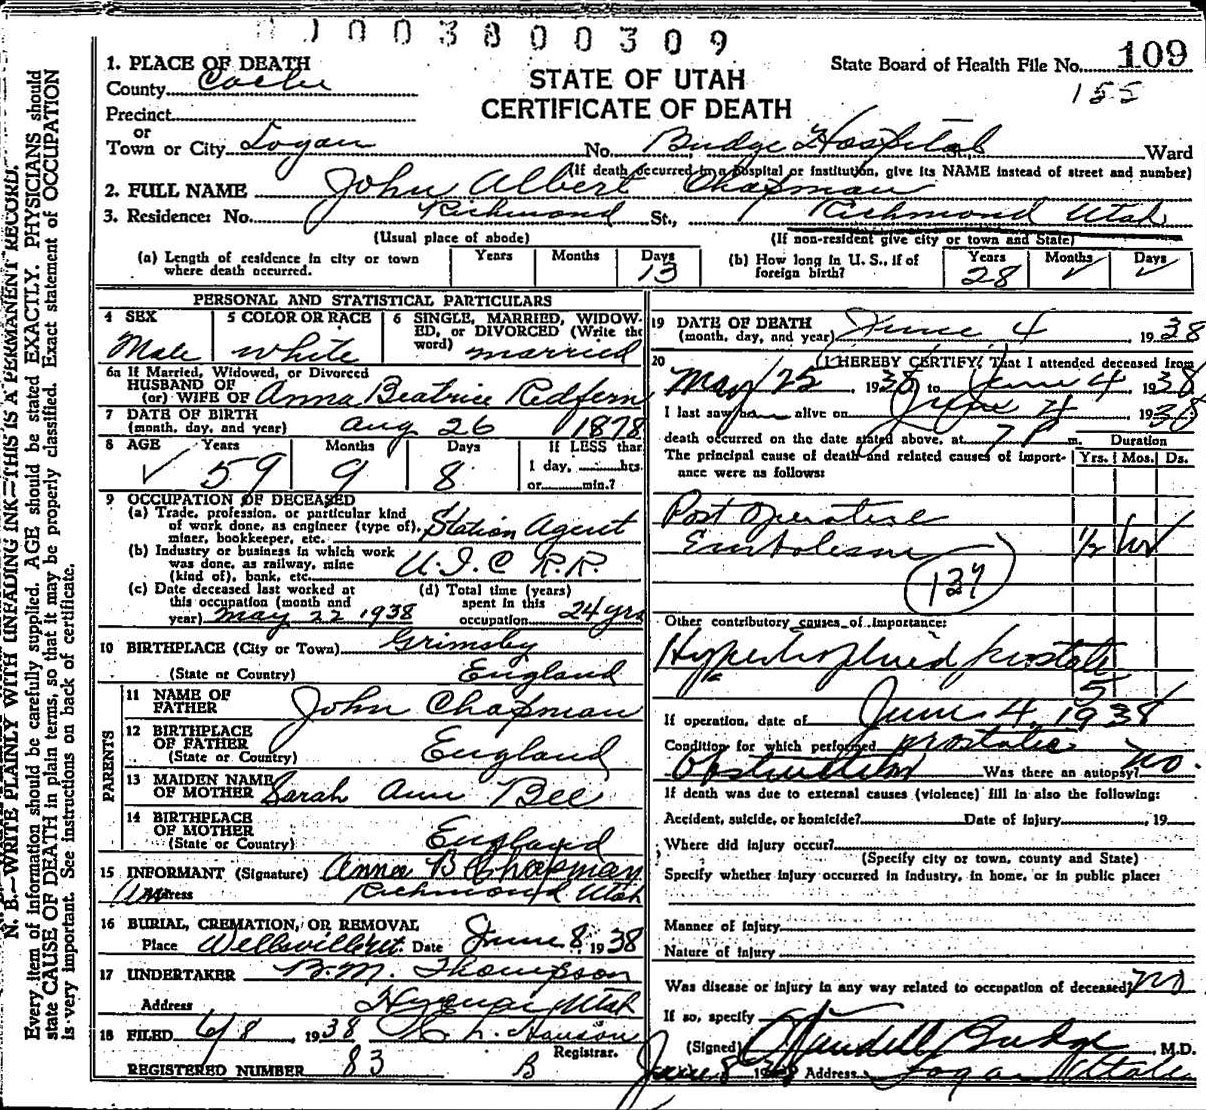 003800309
1. PLACE OF DEATH
County Cache
Precinct
or
Town or City Logan No. Budge Hospital St., Ward
STATE OF UTAH
CERTIFICATE OF DEATH
State Board of Health File No. 109
155
(If death occurred in a hospital or institution, give its NAME instead of street and number)
2. FULL NAME John Albert Chapman
3. Residence: No. Richmond St., Richmond Utah
(Usual place of abode) (If non-resident give city or town and State)
(a) Length of residence in city or town where death occurred. Years Months Days 13
(b) How long in U. S., if of foreign birth? Years 28 Months ✓ Days ✓
PERSONAL AND STATISTICAL PARTICULARS
4 SEX Male
5 COLOR OR RACE white
6 SINGLE, MARRIED, WIDOWED, or DIVORCED (Write the word) married
6a If Married, Widowed, or Divorced
HUSBAND OF
(or) WIFE OF Anna Beatrice Redfern
7 DATE OF BIRTH
(month, day, and year) Aug 26 1878
8 AGE ✓ Years 59 Months 9 Days 8 If LESS than 1 day, hrs. or min.?
9 OCCUPATION OF DECEASED
(a) Trade, profession, or particular kind of work done, as engineer (type of), miner, bookkeeper, etc. Station Agent
(b) Industry or business in which work was done, as railway, mine (kind of), bank, etc. U.I.C R.R.
(c) Date deceased last worked at this occupation (month and year) May 22 1938
(d) Total time (years) spent in this occupation 24 yrs
10 BIRTHPLACE (City or Town) Grimsby
(State or Country) England
PARENTS
11 NAME OF FATHER John Chapman
12 BIRTHPLACE OF FATHER
(State or Country) England
13 MAIDEN NAME OF MOTHER Sarah Ann Bee
14 BIRTHPLACE OF MOTHER
(State or Country) England
15 INFORMANT (Signature) Anna B Chapman
Address Richmond Utah
16 BURIAL, CREMATION, OR REMOVAL
Place Wellsville Ut. Date June 8, 1938
17 UNDERTAKER B.M. Thompson
Address Hyrum Utah
18 FILED 6/8, 1938 Hanson
Registrar.
REGISTERED NUMBER 83 B
19 DATE OF DEATH
(month, day, and year) June 4 1938
20 I HEREBY CERTIFY, That I attended deceased from
May 25, 1938 to June 4 1938
I last saw him alive on June 4 1938
death occurred on the date stated above, at 7 P m. Duration
The principal cause of death and related causes of importance were as follows: Yrs. Mos. Ds.
Post Operative
Embolism ½ hr
137
Other contributory causes of importance:
Hypertrophied prostate
5
If operation, date of June 4, 1938
Condition for which performed prostatic
Obstruction Was there an autopsy? no.
If death was due to external causes (violence) fill in also the following:
Accident, suicide, or homicide? Date of Injury , 19
Where did injury occur?
(Specify city or town, county and State)
Specify whether injury occurred in industry, in home, or in public place:
Manner of Injury
Nature of Injury
Was disease or injury in any way related to occupation of deceased? no
If so, specify
(Signed) Wendell Budge, M.D.
June 8 1938 Address Logan Utah
N. B.—WRITE PLAINLY WITH UNFADING INK—THIS IS A PERMANENT RECORD.
Every item of information should be carefully supplied. AGE should be stated EXACTLY. PHYSICIANS should
state CAUSE OF DEATH in plain terms, so that it may be properly classified. Exact statement of OCCUPATION
is very important. See instructions on back of certificate.